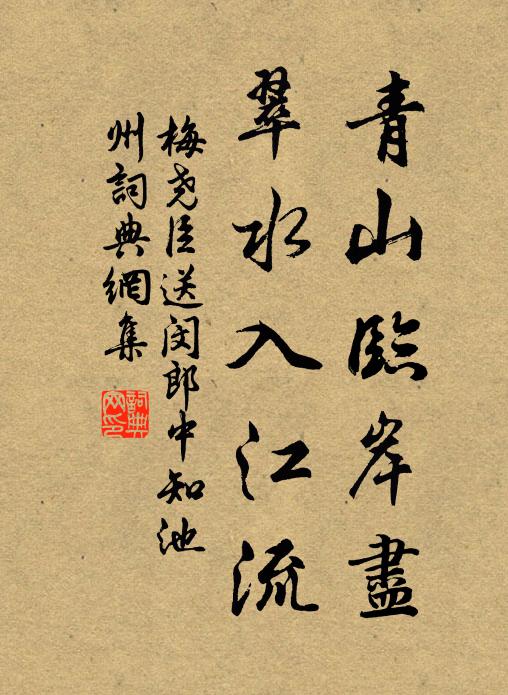 青山臨岸盡
翠水入江流
梅尧臣送闵郎中知池
州詞典網集
詞典网印